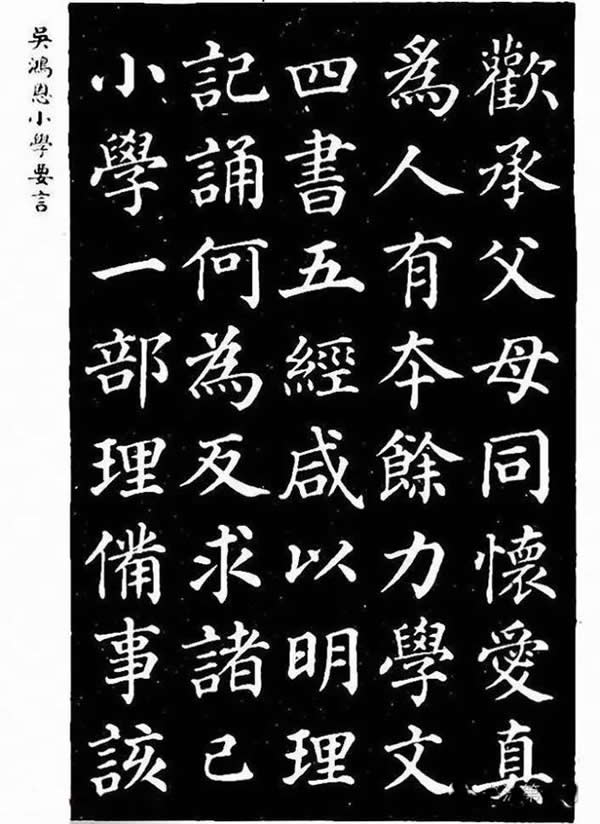 歡承父母同懷愛真
為人有本餘力學文
四書五經咸以明理
記誦何為反求諸己
小學一部理備事該
吳鴻恩小學要言